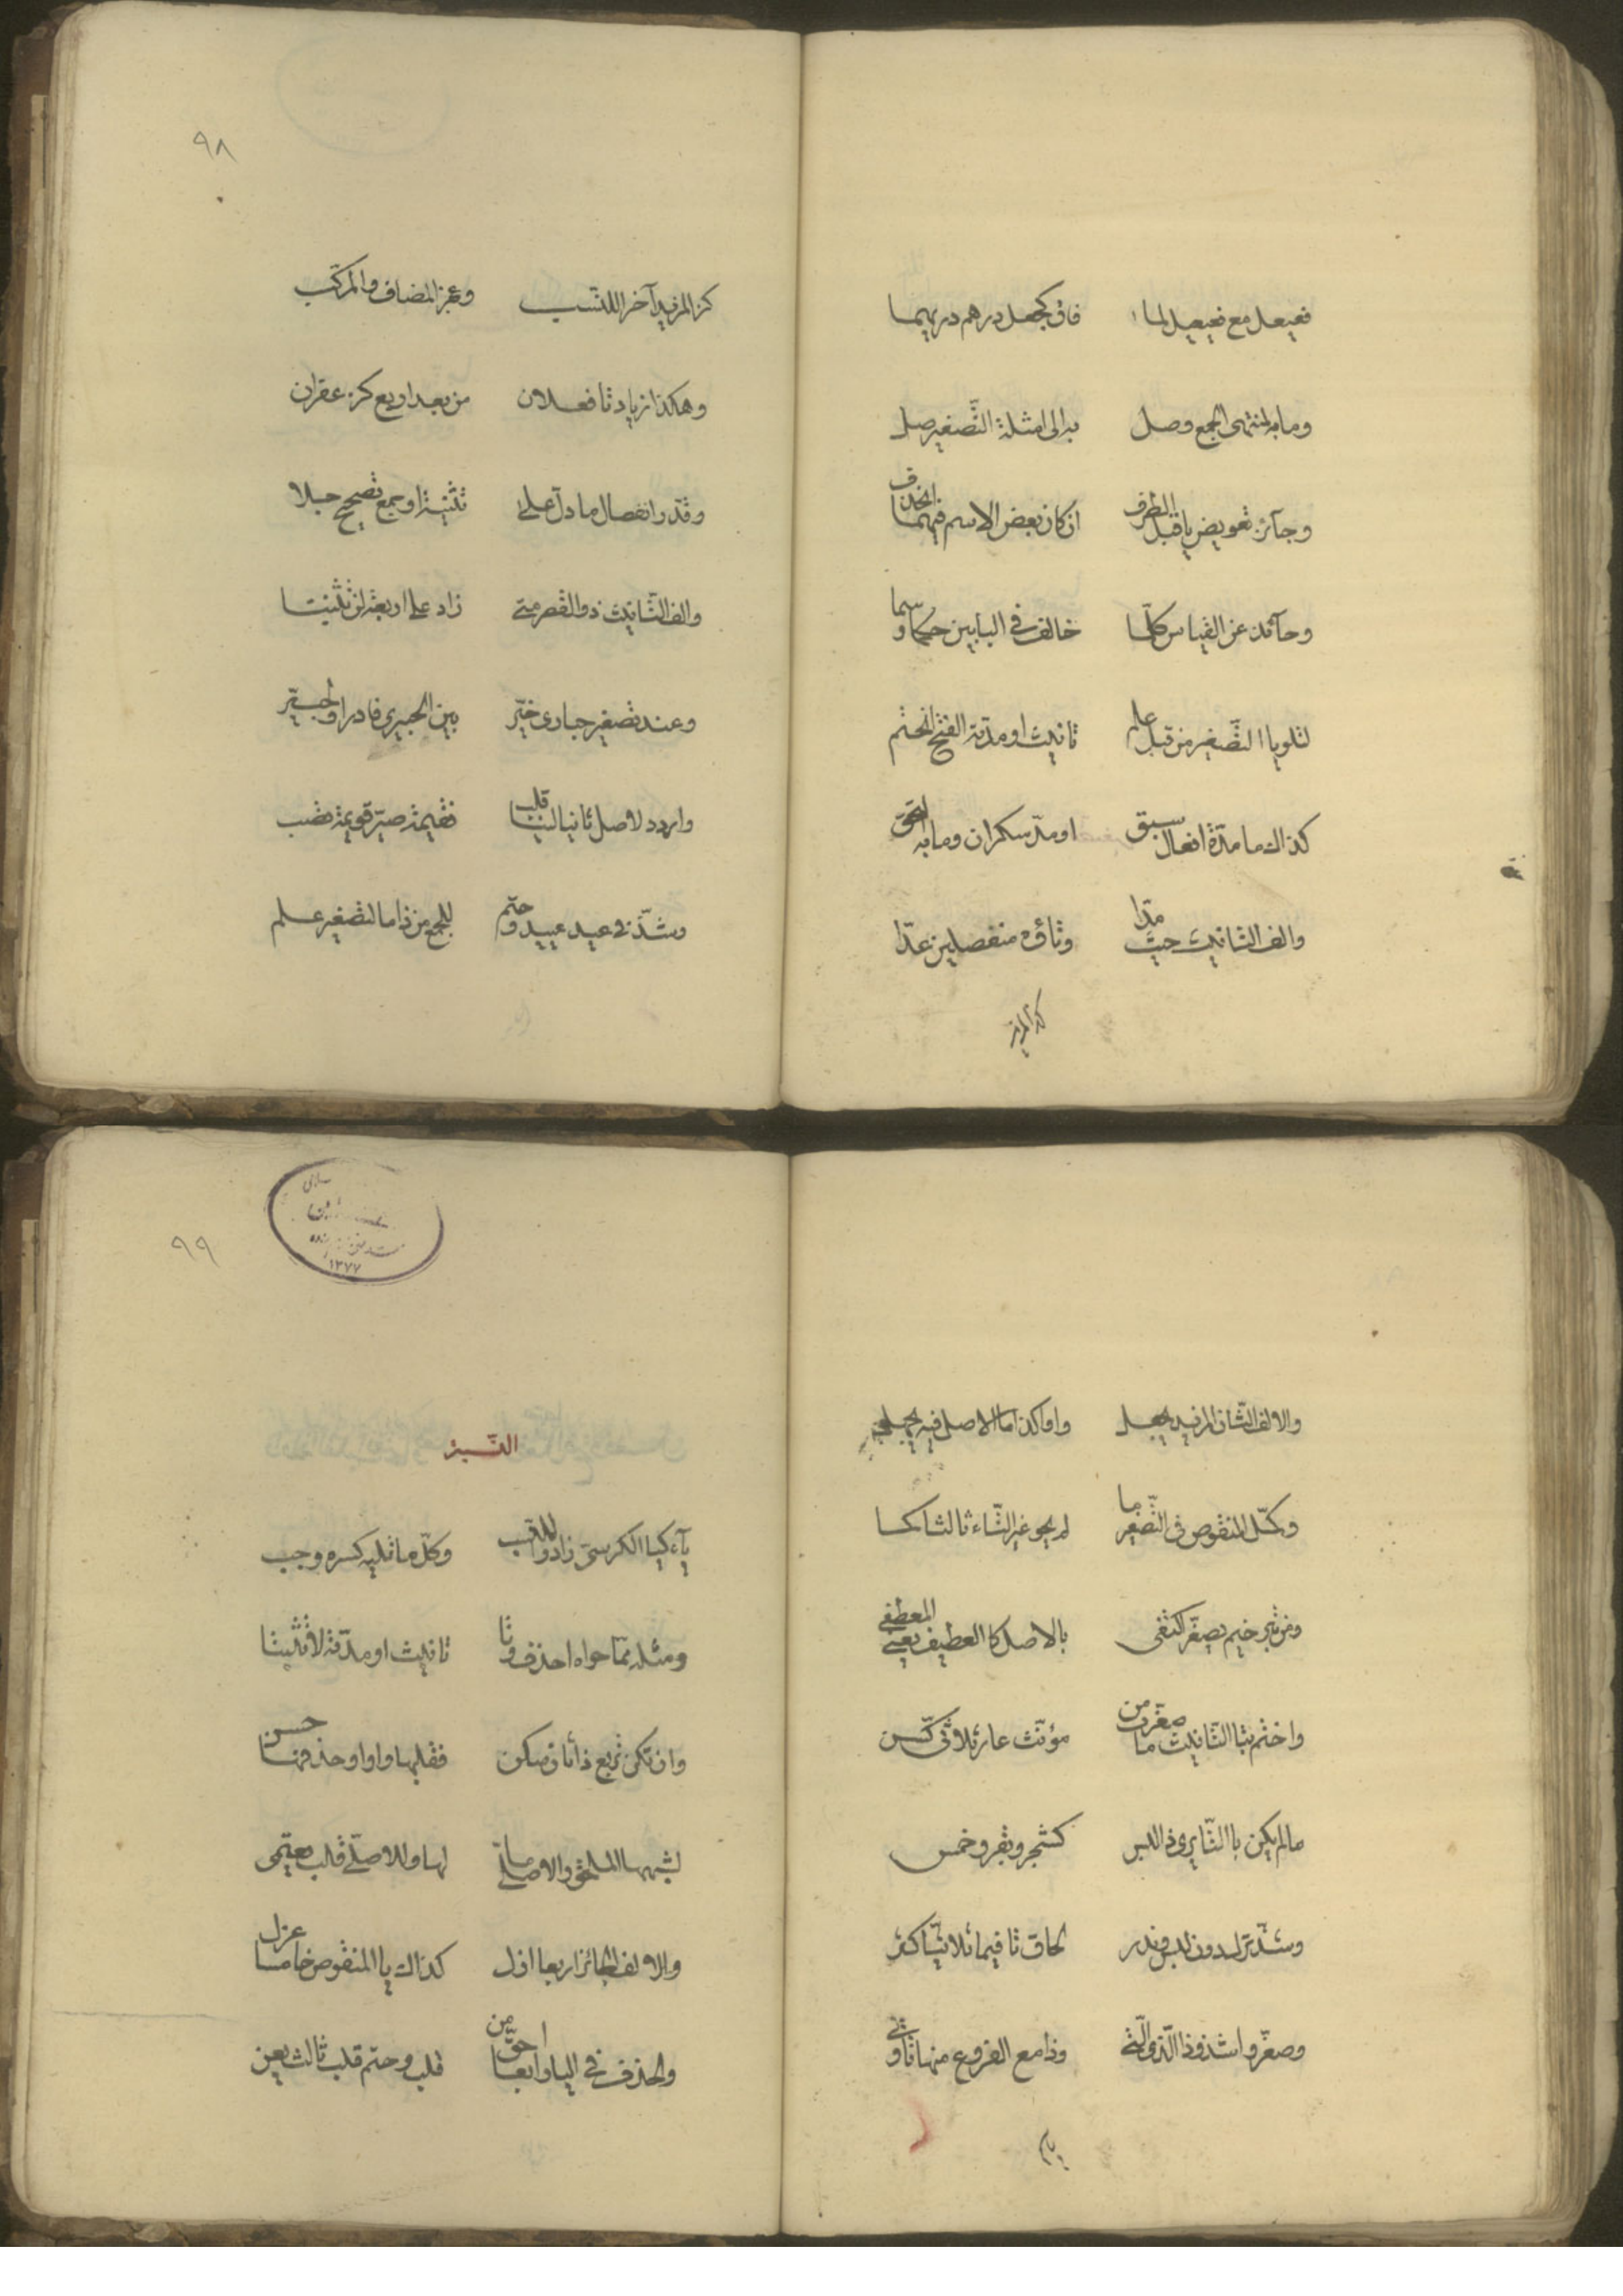 فعيعل مع فعيعيل لما فاق كجعل درهم دريهما
وما به لمنتهى الجمع وصل به الى امثلة التّصغير صل
وجآئز تعويض يا قبل الطرف ان كان بعض الاسم فيهما انحذف
وحآئد عن القياس كلّما خالف فى البابين حكما رسما
لتلو يا التّصغير من قبل علم تانيث او مدّته الفتح انحتم
كذاك ما مدّة افعال سبق او مدّ سكران وما به التحق
والف التانيث حيث مدّا وتاؤه منفصلين عدّا
كذا المزيد
٩٨
كذا المزيد آخرا للنّسب وعجز المضاف والمركّب
وهكذا زيادتا فعلان من بعد اربع كزعفران
وقدّر انفصال ما دلّ على تثنية او جمع تصحيح جلا
والف التّانيث ذو القصر متى زاد على اربعة لن تثبتا
وعند تصغير حبارى خيّر بين الحبيرى فادر والحبيّر
واردد لاصل ثانيا لينا قلب فقيمة صيّر قويمة تصب
وشذّ فى عيد عييد وحتم للجمع من ذا ما لتصغير علم
والالف الثّان المزيد يجعل واوا كذا ما الاصل فيه يجهل
وكمّل المنقوص فى التّصغير ما لم يحو غير التّاء ثالثا كما
ومن بترخيم يصغّر اكتفى بالاصل كالعطيف يعنى المعطفى
واختم بتا التّانيث ما صغّرت من مؤنّث عار ثلاثى كسن
ما لم يكن بالتّا يرى ذا لبس كشجر وبقر وخمس
وشذّ ترك دون لبس وندر لحاق تا فيما ثلاثيّا كثر
وصغّروا شذوذا الّذى الّتى وذا مع الفروع منها تا وتى
ياء
٩٩
١٣٧٧
النّسبة
يآء كيا الكرسىّ زادوا للنّسب وكلّ ما تليه كسره وجب
ومثله ممّا حواه احذف وتا تانيث او مدّته لا تثبتا
وان تكن تربع ذا ثان سكن فقلبها واوا وحذفها حسن
لشبهها الملحق والاصلىّ ما لها وللاصلىّ قلب يعتمى
والالف الجائز اربعا ازل كذاك يا المنقوص خامسا عزل
والحذف فى اليا رابعا احقّ من قلب وحتم قلب ثالث يعن